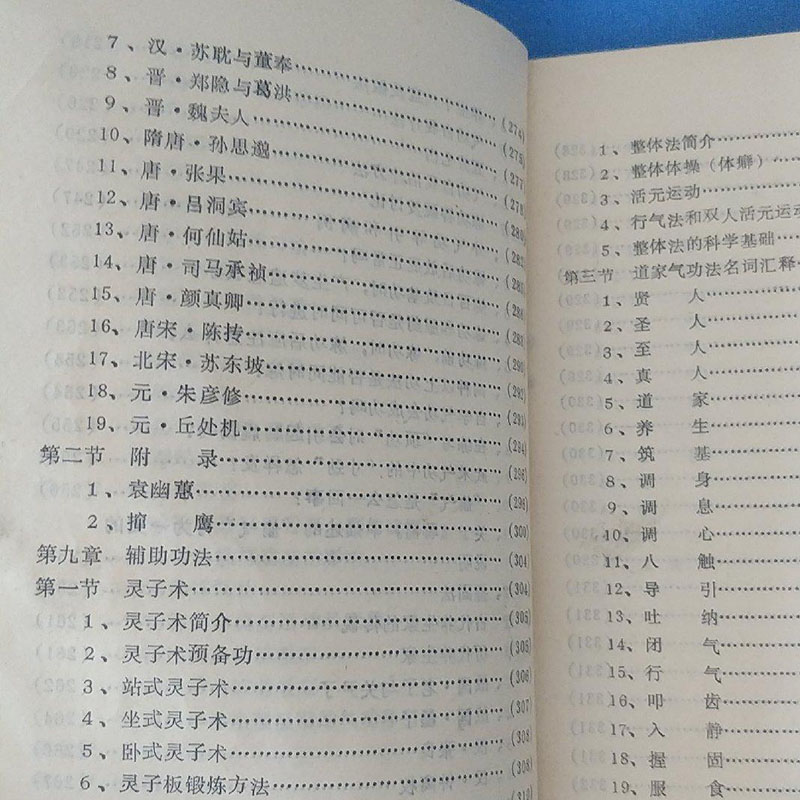 7、汉·苏耽与董奉……………(274)
8、晋·郑隐与葛洪……………(275)
9、晋·魏夫人……………(277)
10、隋唐·孙思邈……………(278)
11、唐·张果……………(280)
12、唐·吕洞宾……………(282)
13、唐·何仙姑……………(283)
14、唐·司马承祯……………
15、唐·颜真卿……………
16、唐宋·陈抟……………(290)
17、北宋·苏东坡……………(292)
18、元·朱彦修……………(293)
19、元·丘处机……………(294)
第二节 附 录……………
1、袁幽蕙……………(298)
2、 鹰……………(300)
第九章 辅助功法……………(304)
第一节 灵子术……………(304)
1、灵子术简介……………(305)
2、灵子术预备功……………(305)
3、站式灵子术……………(306)
4、坐式灵子术……………(307)
5、卧式灵子术……………(308)
6、灵子板锻炼方法……………(310)
1、整体法简介……………
2、整体体操（体癖）……………
3、活元运动……………
4、行气法和双人活元运动
5、整体法的科学基础……………
第三节 道家气功法名词汇释
1、贤 人……………
2、圣 人……………
3、至 人……………
4、真 人……………
5、道 家……………
6、养 生……………
7、筑 基……………
8、调 身……………
9、调 息……………
10、调 心……………
11、八 触……………
12、导 引……………
13、吐 纳……………
14、闭 气……………
15、行 气……………
16、叩 齿……………
17、入 静……………
18、握 固……………
19、服 食……………